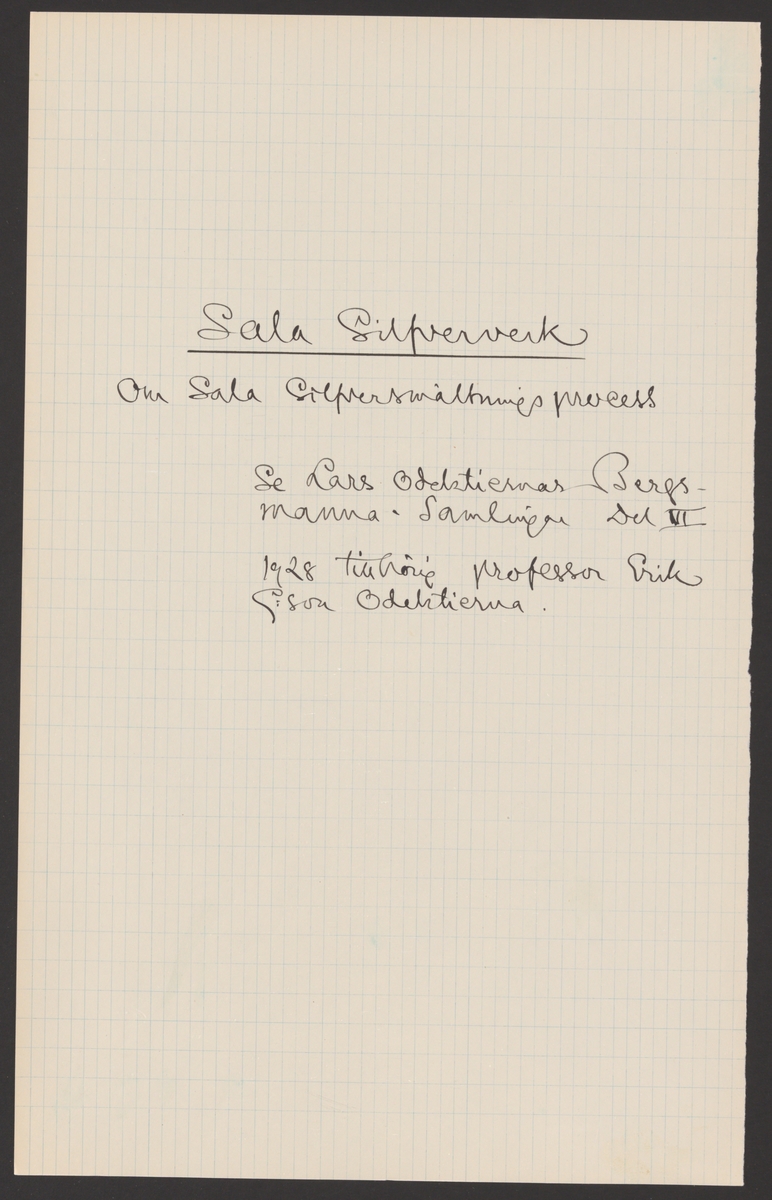 Sala Silfververk
Om Sala Silfversmältnings process
Se Lars Odelstiernas Bergs-
manna-Samlingar Del VII
1928 tillhörig professor Erik
G:son Odelstierna.